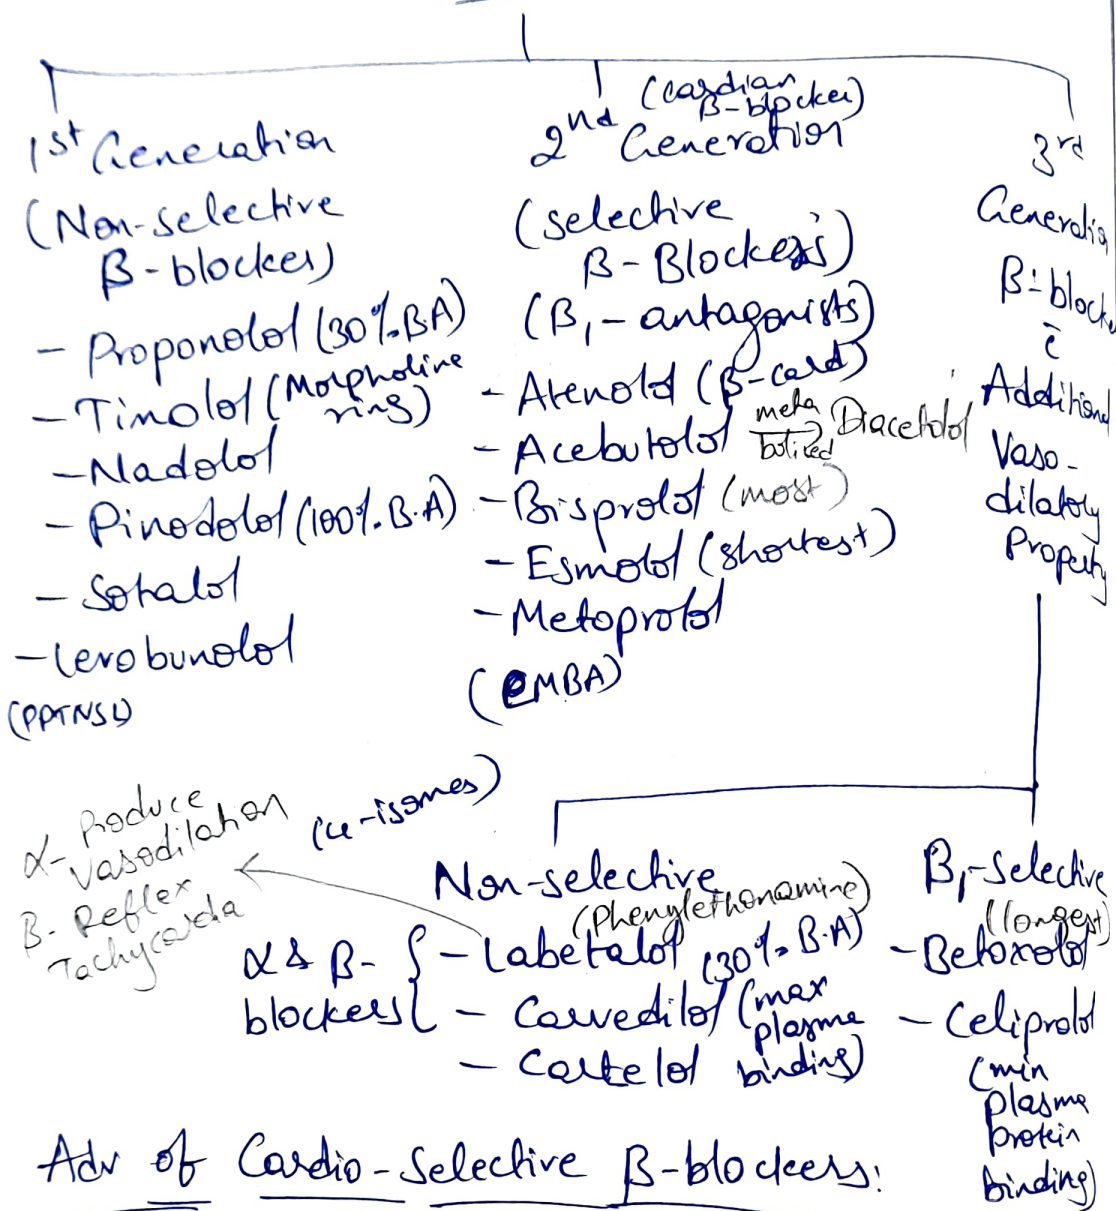 1st Generation
(Non-selective
β-blocker)
- Proponolol (30%.BA)
- Timolol (Morpholine
ring)
- Nadolol
- Pinodolol (100%. B.A)
- Sotalol
- Levobunolol
(PPTNSL)
(Cardian
β-blocker)
2nd Generation
(selective
β-Blockers)
(β1-antagonists)
- Atenolol (β-card)
- Acebutolol meta
bolized Diacetolol
- Bisprolol (most)
- Esmolol (shortest)
- Metoprolol
(EMBA)
3rd
Generatio
β-block
c̄
Additional
Vaso-
dilatory
Property
α- Produce
vasodilation
β- Reflex
Tachycarda
(4-isomes)
Non-selective
(Phenylethonamine)
α & β-
blockers
- Labetalol (30%. B.A)
- Carvedilol (max
plasma
binding)
- Cartelol
β1-selective
(longest)
- Betoxolol
- Celiprolol
(min
plasma
protein
binding)
Adv of Cardio-Selective β-blockers: